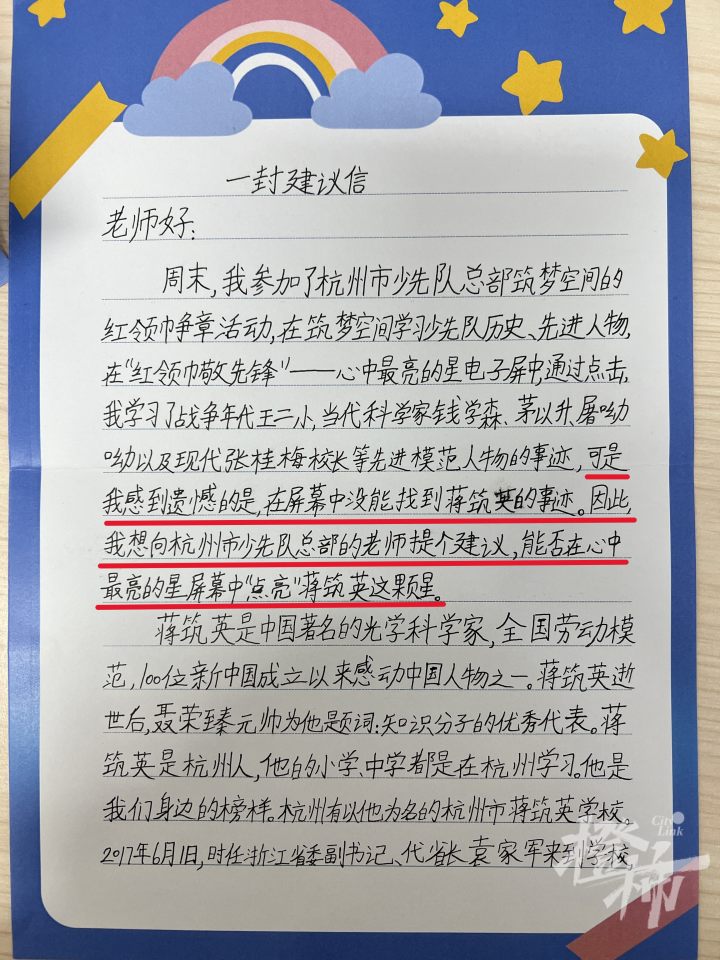 一封建议信
老师好:
周末,我参加了杭州市少先队总部筑梦空间的
红领巾争章活动,在筑梦空间学习少先队历史、先进人物,
在“红领巾敬先锋”——心中最亮的星电子屏中,通过点击,
我学习了战争年代王二小,当代科学家钱学森、茅以升、屠呦
呦以及现代张桂梅校长等先进模范人物的事迹,可是
我感到遗憾的是,在屏幕中没能找到蒋筑英的事迹。因此,
我想向杭州市少先队总部的老师提个建议,能否在心中
最亮的星屏幕中“点亮”蒋筑英这颗星。
蒋筑英是中国著名的光学科学家,全国劳动模
范,100位新中国成立以来感动中国人物之一。蒋筑英逝
世后,聂荣臻元帅为他题词:知识分子的优秀代表。蒋
筑英是杭州人,他的小学、中学都是在杭州学习。他是
我们身边的榜样。杭州有以他为名的杭州市蒋筑英学校。
2017年6月1日,时任浙江省委副书记、代省长袁家军来到学校,
City Link
橙柿